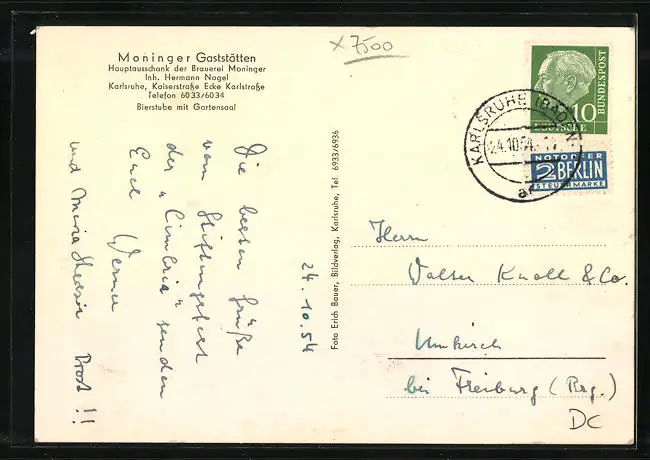 Moninger Gaststätten
Hauptausschank der Brauerei Moninger
Inh. Hermann Nagel
Karlsruhe, Kaiserstraße Ecke Karlstraße
Telefon 6033/6034
Bierstube mit Gartensaal
x 7500
24.10.54
Die besten Grüße
vom Stiftungsfest
der "Cimbria" senden
Euch Werner
und Prost!!
Foto Erich Bauer, Bildverlag, Karlsruhe, Tel. 6933/6936
10
DEUTSCHE
BUNDESPOST
KARLSRUHE (BADEN)
24.10.54
NOTOPFER
2 BERLIN
STEUERMARKE
Herrn
Walter Knoll & Co.
Umkirch
bei Freiburg (Brg.)
DC